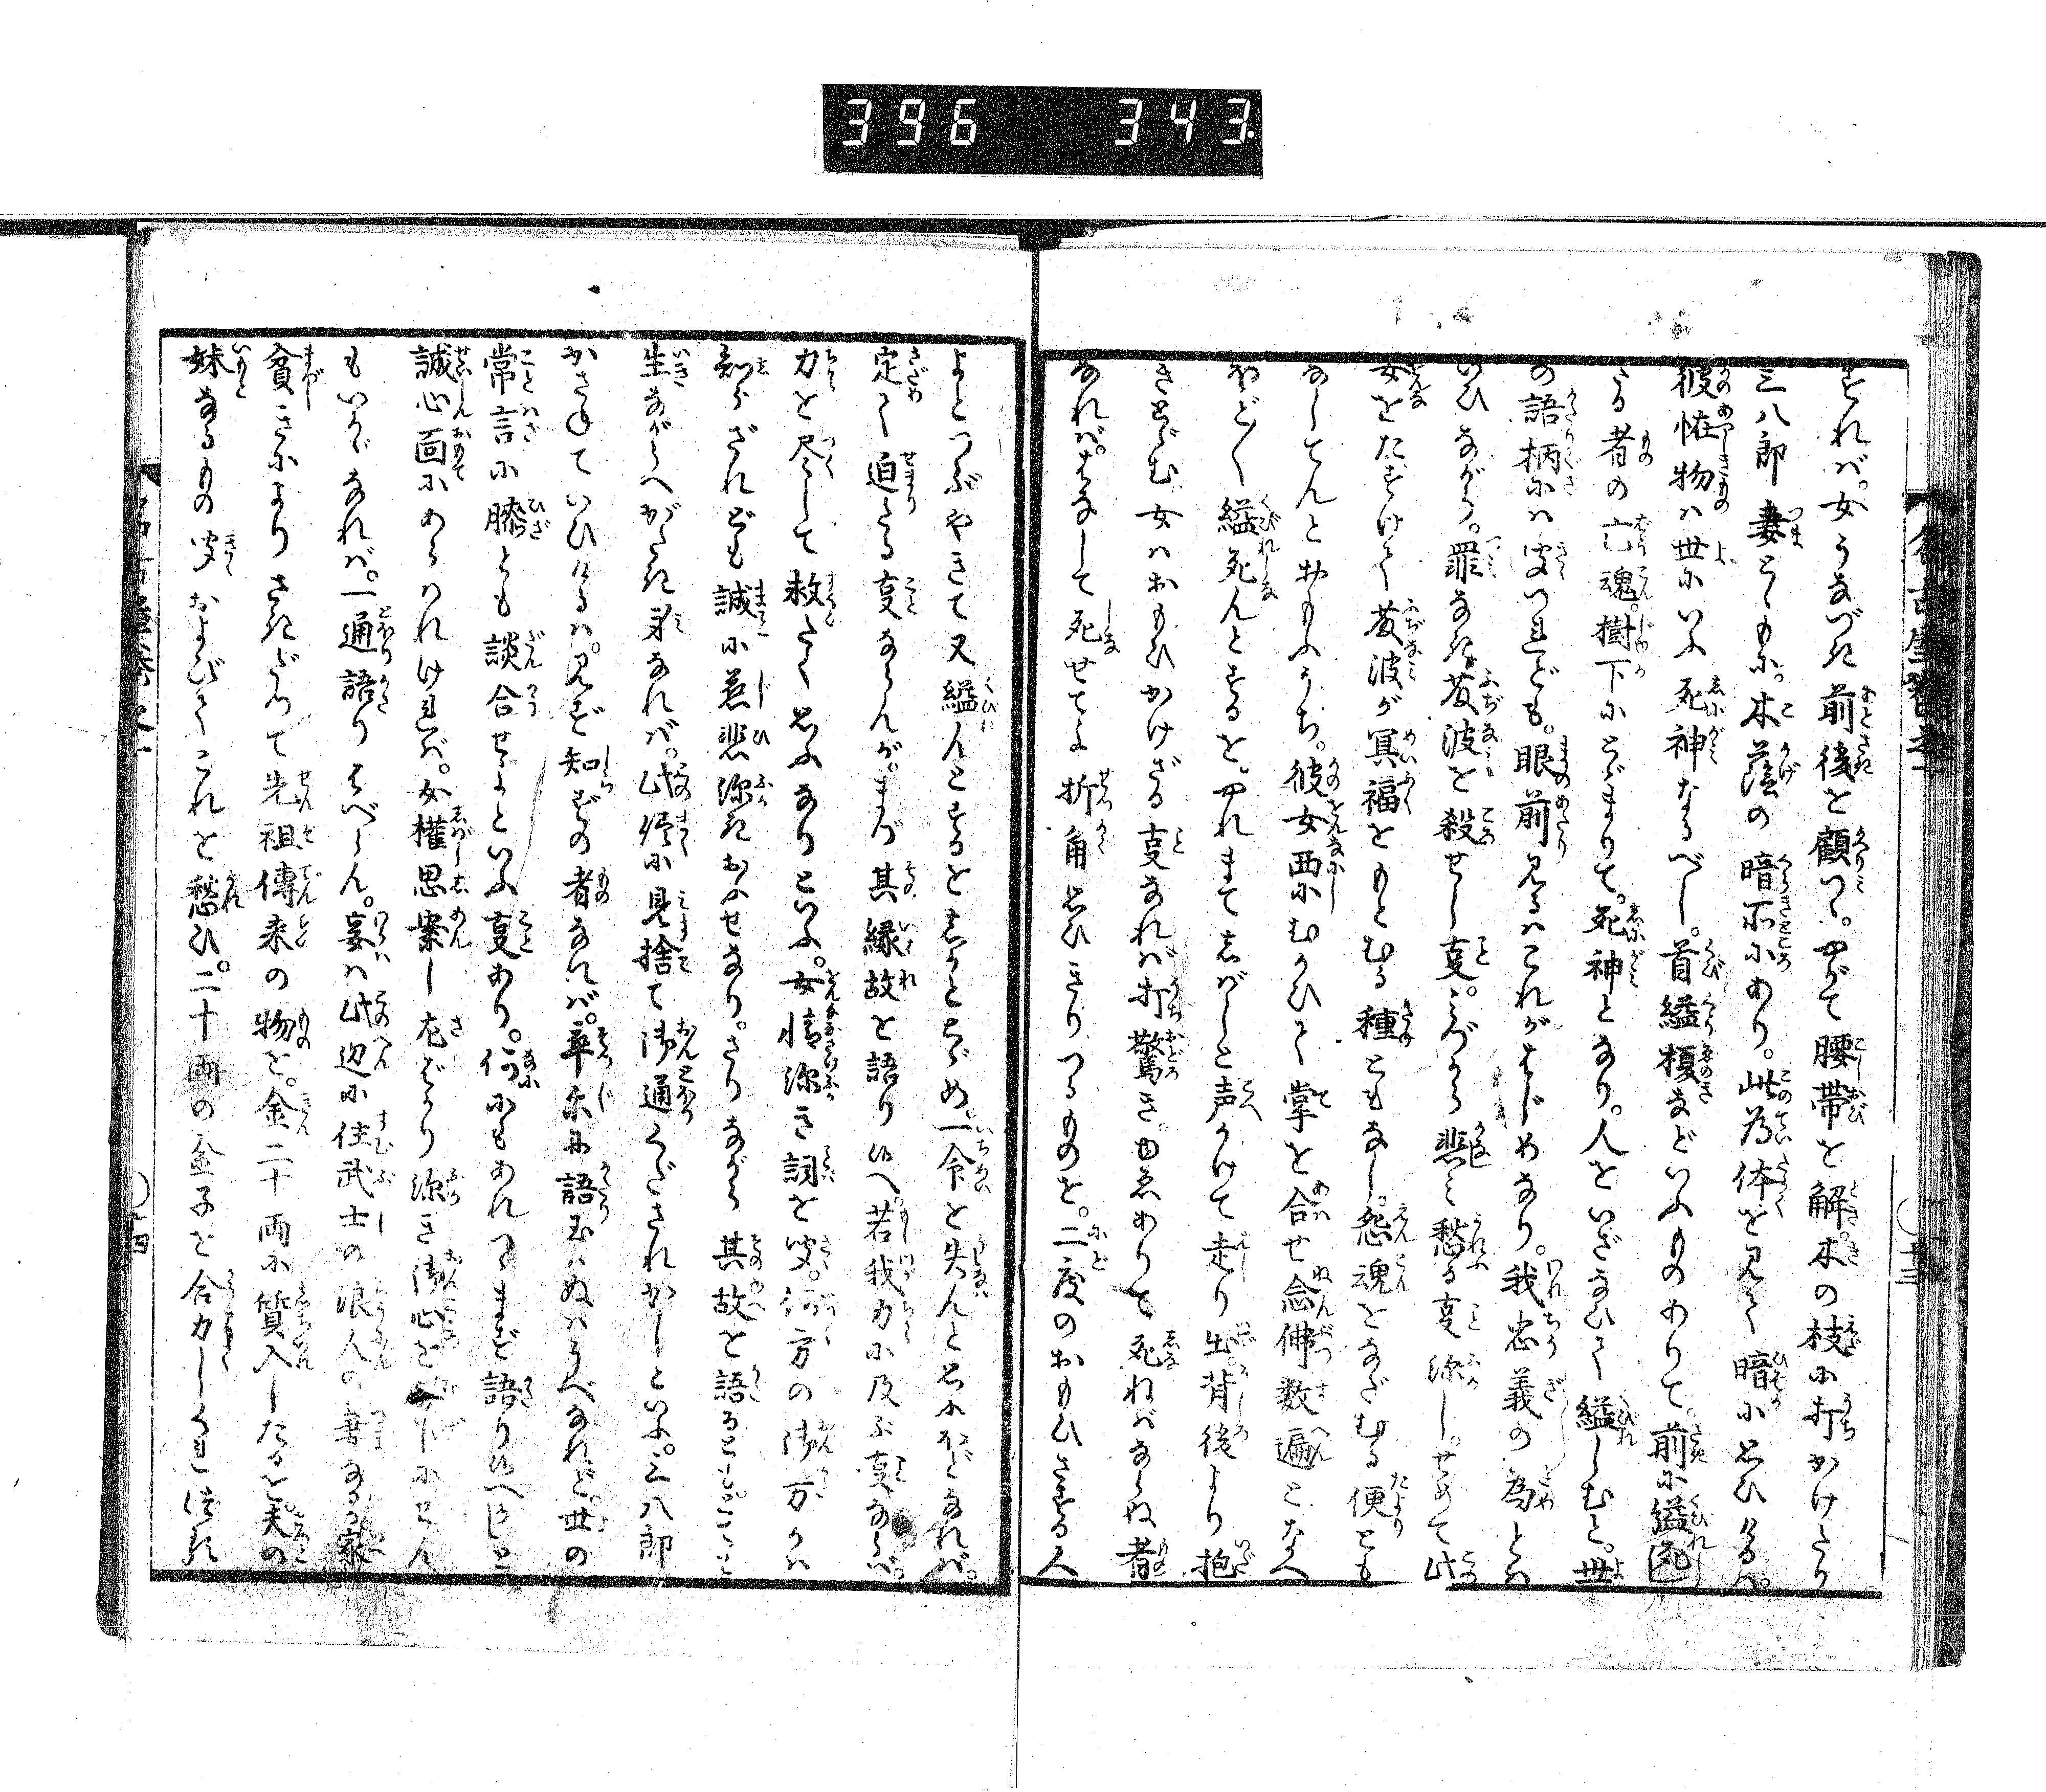 396 343
すれバ。女うなづき前後を顧つゝ。やがて腰帯を解。木の枝に打かけたり
三八郎妻とゝもに。木蔭の暗所にあり。此為体を見て暗に思ひけるハ。
彼恠物ハ世にいふ死神なるべし。首縊榎などいふものありて。前に縊死
たる者の亡魂。樹下にとゞまりて。死神となり。人をいざなひて縊しむと。世
の語柄にハ聞つれども。眼前見るハこれがはじめなり。我忠義の為とハ
いひながら。罪なき藤波を殺せし事。みづから悲み愁る事深し。せめて此
女をたすけて藤波が冥福をもとむる種ともなし。怨魂をなだむる便とも
なしてんとおもふうち。彼女西にむかひて掌を合せ念佛数遍となへ
ほど〳〵縊死んとするを。やれまてしばしと声かけて走り出。背後より抱
きとゞむ。女ハおもひかけざる事なれバ打驚き。ゆゑありて死ねバならぬ者
なれバ。はなして死せてよ折角思ひきりつるものを。二度のおもひさする人
よとつぶやきて又縊んとするをしかととゞめ。一命を失んと思ふほどなれバ。
定て迫たる事ならんが。まづ其縁故を語り候へ。若我力に及ぶ事ならバ。
力を尽して救たく思ふなりといふ。女情深き詞を聞。何方の御方かハ
知らざれども誠に慈悲深きおふせなり。さりながら其故を語るとも。とても
生ながらへがたき身なれバ。此儘に見捨て御通りくだされかしといふ。三八郎
かさねていひけるハ。見ず知ずの者なれバ。率尓に語玉ハぬハうべなれど。世の
常言に膝とも談合せよといふ事あり。何にもあれつまず語り候へかしと
誠心面にあらハれけれバ。女權思案し左ばかり深き御心を無下にせん
もいかゞなれバ。一通語りはべらん。妾ハ此辺に住武士の浪人の妻なるが家
貧きによりさきだつて先祖傳来の物を。金二十両に質入したるを。夫の
妹なるもの聞およびてこれを愁ひ。二十両の金子を合力しくれ侍れ